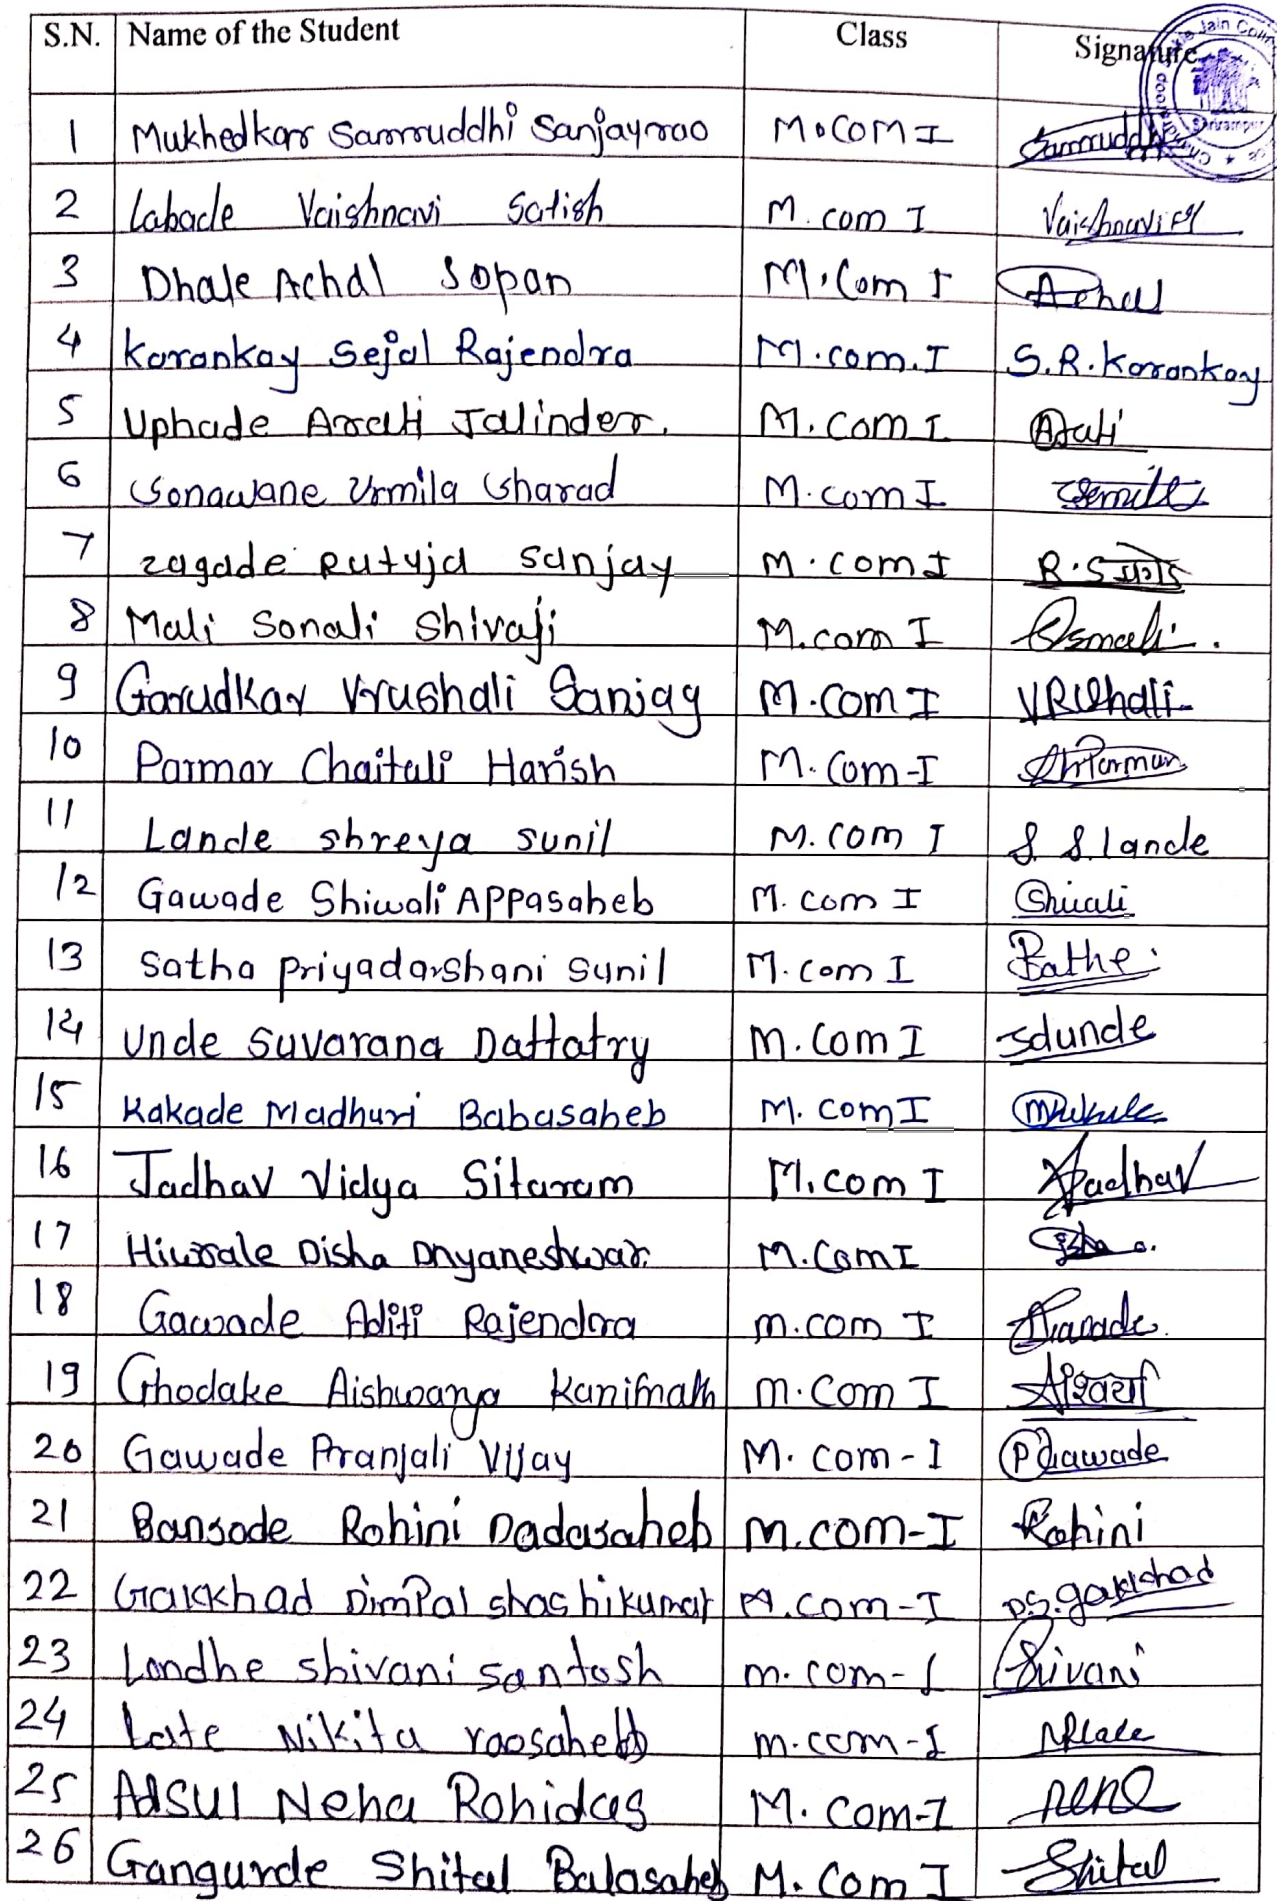 S.N. Name of the Student Class Signature
1 Mukhedkar Samruddhi Sanjayrao M.COM I Samruddhi
2 Labade Vaishnavi Satish M.com I Vaishnavi
3 Dhale Achal Sopan M.Com I Achal
4 Korankay Sejal Rajendra M.com.I S.R.Korankay
5 Uphade Arati Jalinder. M.com I Arati
6 Sonawane Urmila Sharad M.com I
7 zagade Rutuja Sanjay M.com I R.S
8 Mali Sonali Shivaji M.com I
9 Garudkar Vrushali Sanjay M.com I VRUshali
10 Parmar Chaitali Harish M.Com-I Parmar
11 Lande shreya sunil M.com I S. S. lande
12 Gawade Shiwali APPasaheb M.com I Shiwali
13 Satha Priyadarshani Sunil M.com I
14 Unde Suvarana Dattatry M.com I sdunde
15 Kakade Madhuri Babasaheb M.com I
16 Jadhav Vidya Sitaram M.com I Jadhav
17 Hiwrale Disha Dnyaneshwar. M.com I
18 Gawade Aditi Rajendra m.com I
19 Ghodake Aishwarya Kanifnath m.com I ऐश्वर्या
20 Gawade Pranjali Vijay M.com-I PGawade
21 Bansode Rohini Dadasaheb M.com-I Rohini
22 Gakkhad DimPal shashikumar M.com-I D.S.gakkhad
23 Londhe shivani santosh m.com-I Shivani
24 Late Nikita raosaheb m.com-I
25 Adsul Neha Rohidas M.com-I Neha
26 Gangurde Shital Balasaheb M.Com I Shital